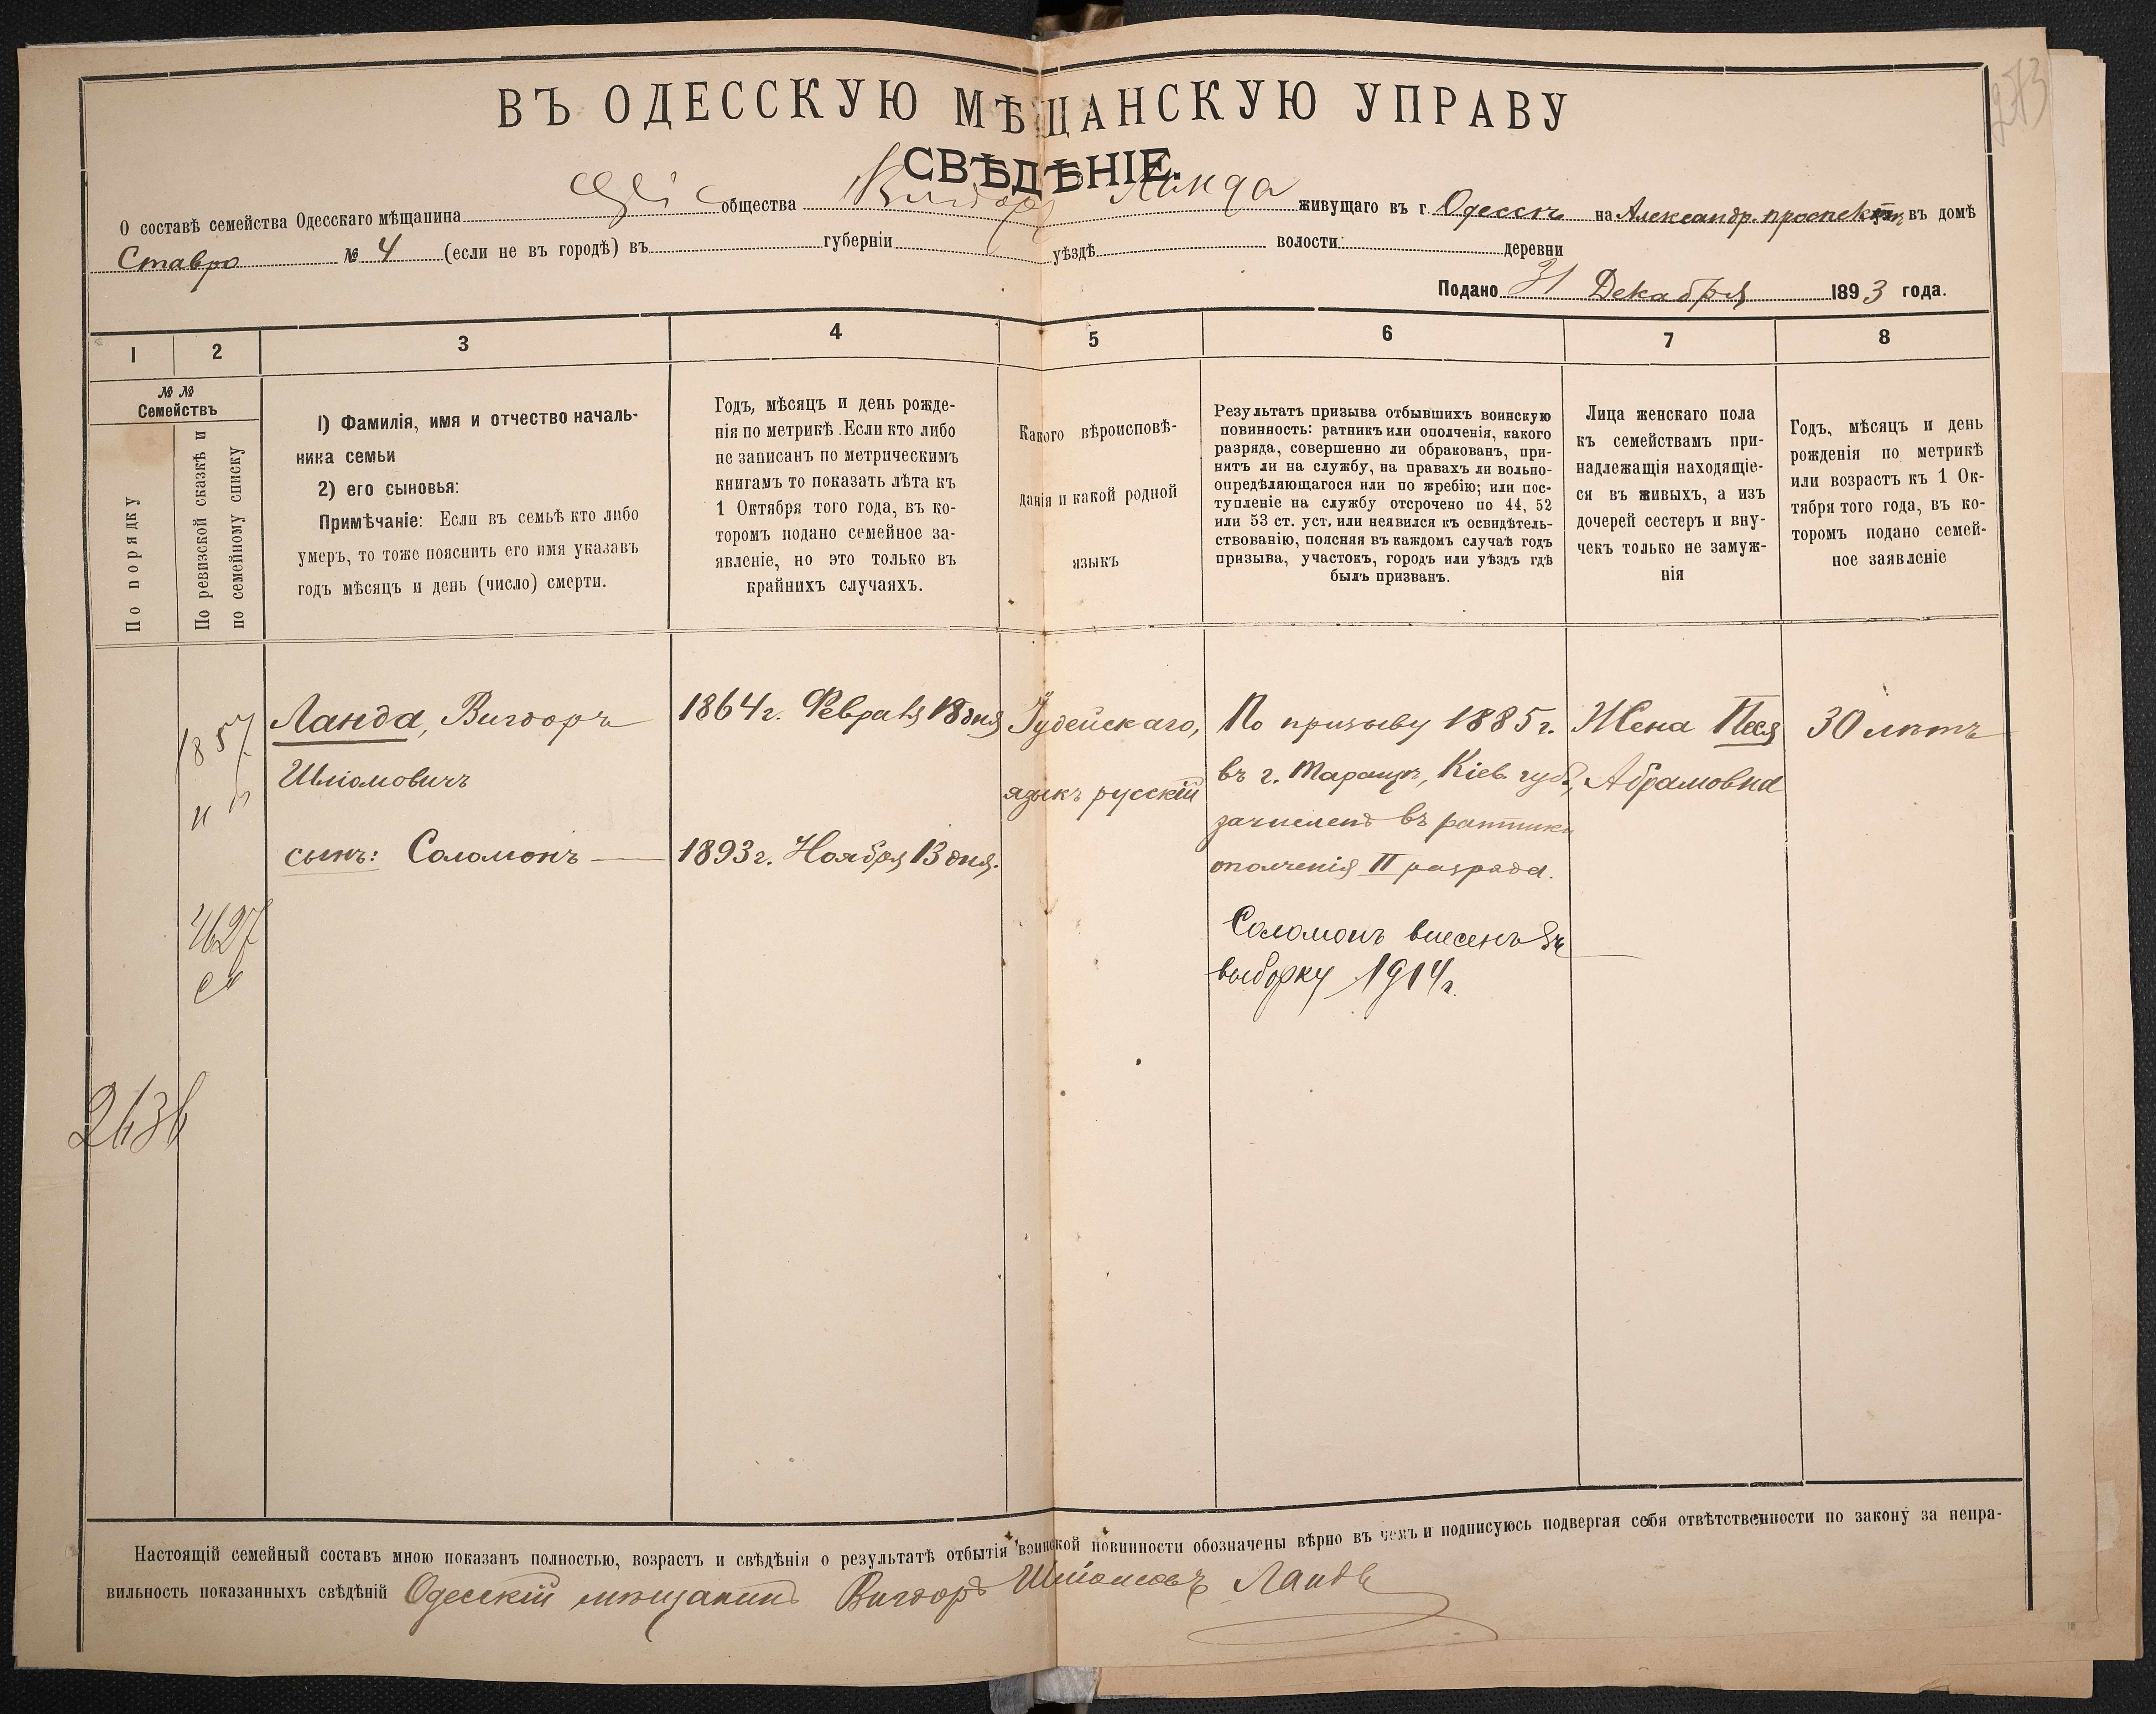 273
ВЪ ОДЕССКУЮ МѢЩАНСКУЮ УПРАВУ
СВѢДѢНІЕ.
О составѣ семейства Одесскаго мѣщанина общества Вигдор Ланда живущаго въ г. Одессѣ на Александр. проспектѣ въ домѣ
Ставро № 4 (если не въ городѣ) въ губерніи уѣздѣ волости деревни
Подано 31 Декабря 1893 года.
1 2 3 4 5 6 7 8
№ №
Семействъ
По порядку
По ревизской сказкѣ и
по семейному списку
1) Фамилія, имя и отчество началь-
ника семьи
2) его сыновья:
Примѣчаніе: Если въ семьѣ кто либо
умеръ, то тоже пояснить его имя указавъ
годъ мѣсяцъ и день (число) смерти.
Годъ, мѣсяцъ и день рожде-
нія по метрикѣ. Если кто либо
не записанъ по метрическимъ
книгамъ то показать лѣта къ
1 Октября того года, въ ко-
торомъ подано семейное за-
явленіе, но это только въ
крайнихъ случаяхъ.
Какого вѣроисповѣ-
данія и какой родной
языкъ
Результатъ призыва отбывшихъ воинскую
повинность: ратникъ или ополченія, какого
разряда, совершенно ли обракованъ, при-
нятъ ли на службу, на правахъ ли вольно-
опредѣляющагося или по жребію; или пос-
тупленіе на службу отсрочено по 44, 52
или 53 ст. уст, или неявился къ освидѣтель-
ствованію, поясняя въ каждомъ случаѣ годъ
призыва, участокъ, городъ или уѣздъ гдѣ
былъ призванъ.
Лица женскаго пола
къ семействамъ при-
надлежащія находящіе-
ся въ живыхъ, а изъ
дочерей сестеръ и вну-
чекъ только не замуж-
нія
Годъ, мѣсяцъ и день
рожденія по метрикѣ
или возрастъ къ 1 Ок-
тября того года, въ ко-
торомъ подано семей-
ное заявленіе
1857
4627
2636
Ланда, Вигдоръ
Шліомовичъ
сынъ: Соломонъ —
1864 г. Февраля 18 дня
1893 г. Ноября 13 дня.
Іудейскаго,
языкъ русскій
По призыву 1885 г.
въ г. Таращѣ, Кіев. губ.,
зачисленъ въ ратники
ополченія II разряда.
Соломонъ внесенъ въ
выборку 1914 г.
Жена Песя
Абрамовна
30 лѣтъ
Настоящій семейный составъ мною показанъ полностью, возрастъ и свѣдѣнія о результатѣ отбытія воинской повинности обозначены вѣрно въ чемъ и подписуюсь подвергая себя отвѣтственности по закону за непра-
вильность показанныхъ свѣдѣній Одесскій мѣщанинъ Вигдоръ Шліомовъ Ланда